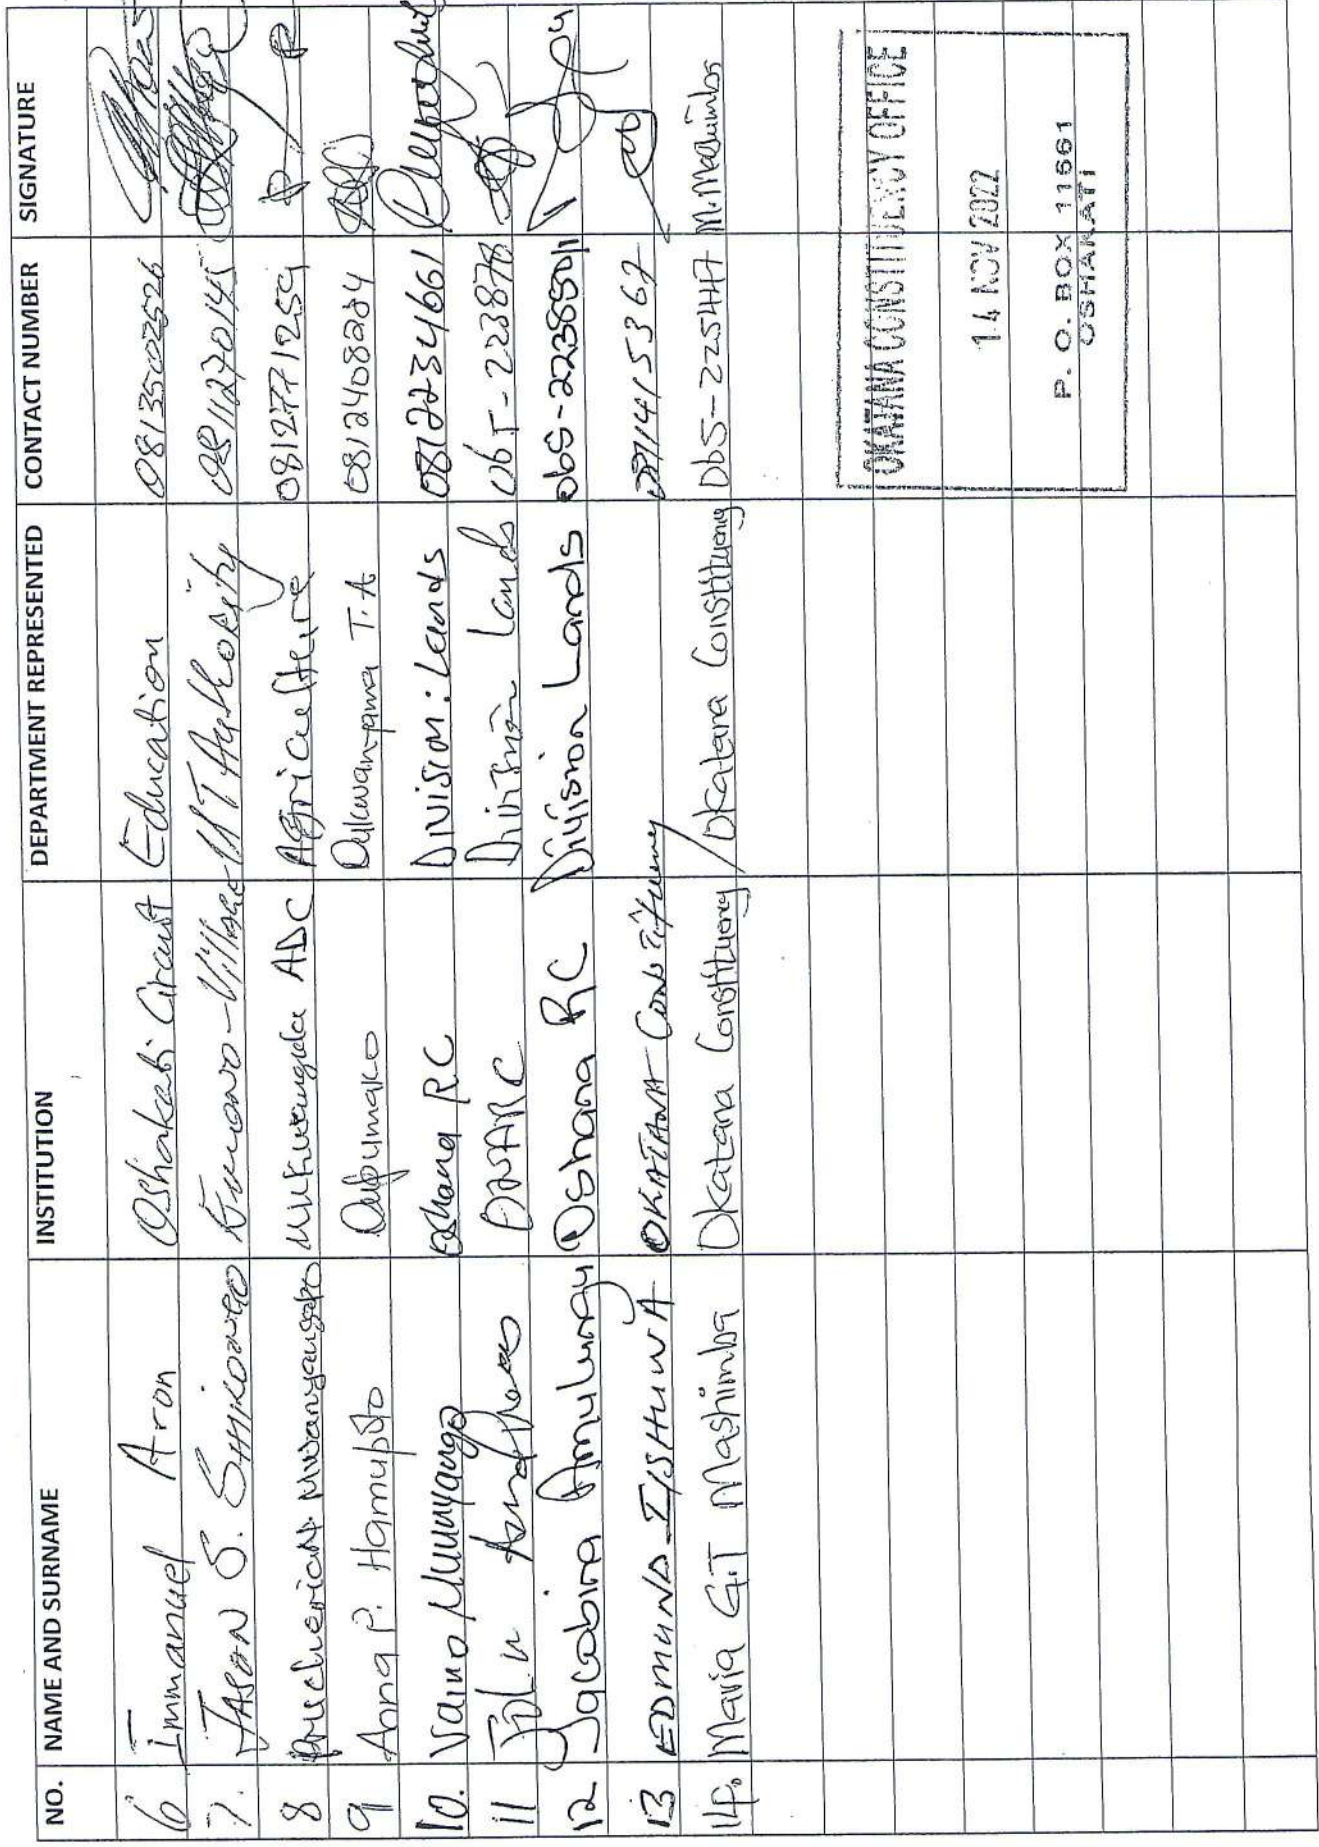 NO. NAME AND SURNAME INSTITUTION DEPARTMENT REPRESENTED CONTACT NUMBER SIGNATURE
6 Immanuel Aron Oshakati Circuit Education 0813502526
7. JASON S. SHIKONGO -Village UKT Authority 0811270145
8 Mukwangula ADC Agriculture 0812771259
9 Anna P. Hamupolo Oukwanyama T.A 0812408284
10. Vaino Munyango Oshana R.C Division: Lands 0812234661
11 Division Lands 065-223878
12 Jacobina Amulungu Oshana RC Division Lands
13 EDMUND IISHUWA OKATANA CONSTITUENCY
14. Maria G.T Mashimba Okatana Constituency / Okatana Constituency 065-225447 M.Mashimba
OKATANA CONSTITUENCY OFFICE
14 NOV 2022
P. O. BOX 11661
OSHAKATI